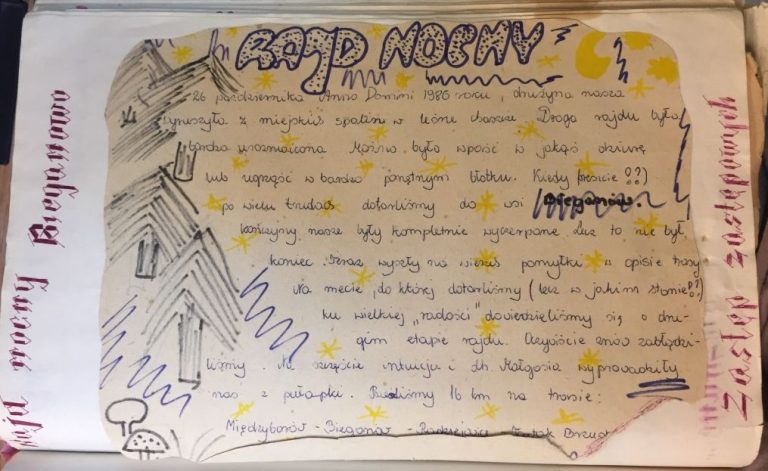 RAJD NOCNY
26 października Anno Domini 1986 roku, drużyna nasza
wyruszyła z miejskiś spalin w leśne chaszcze. Droga rajdu była
bardzo urozmaicona. Można było wpaść w jakąś dziurę
lub ugrząść w bardzo porządnym błotku. Kiedy (wreszcie??)
po wielu trudach dotarliśmy do wsi Bieganów.
kończyny nasze były kompletnie wyczerpane. Lecz to nie był
koniec. Teraz wyszły na wierzch pomyłki w opisie trasy
Na mecie, do której dotarliśmy (lecz w jakim stanie??)
ku wielkiej „radości" dowiedzieliśmy się o dru-
gim etapie rajdu. Oczywiście znów zabłądzi-
liśmy. Na szczęście intuicja i dh. Małgosia wyprowadziły
nas z pułapki. 16 km na trasie:
Międzyborów - Bieganów -
Rajd nocny Bieganowo
Zastęp zastępowych